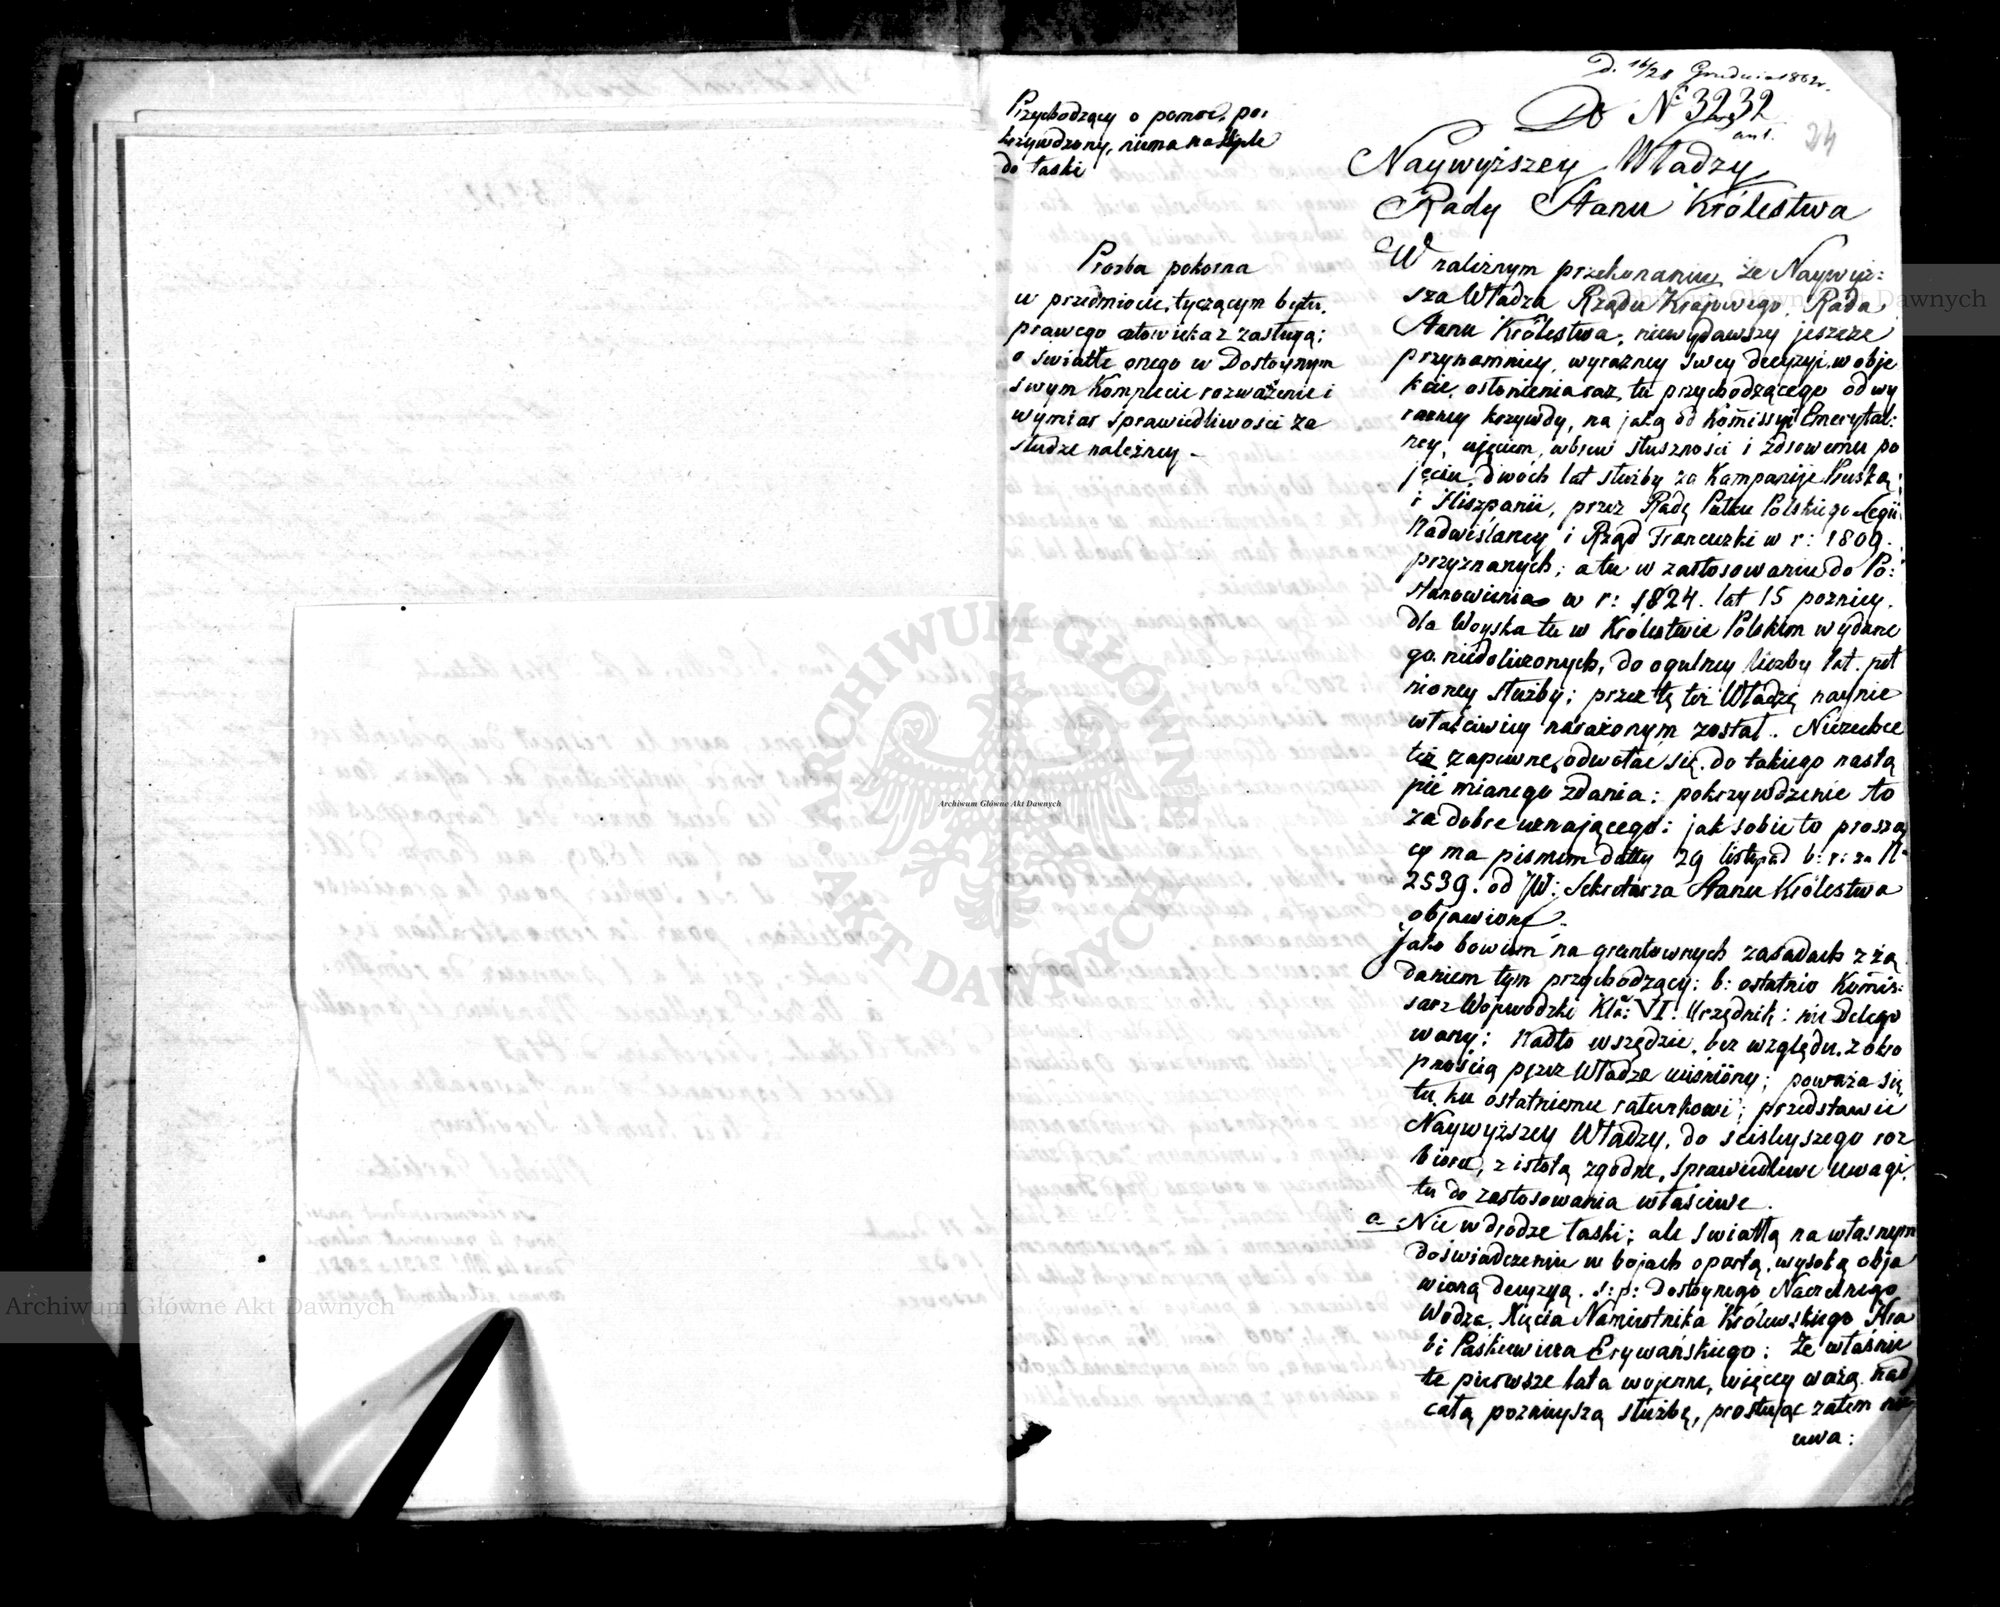 D. 16/28 Grudnia 1862 r.
Do № 3232
ant.
24
Przychodzący o pomoc, po:
krzywdzony, niema
do łaski
Naywyższey Władzy
Rady Stanu Królestwa
Prozba pokorna
w przedmiocie, tyczącym bytu,
prawego człowieka z zasługą;
o światłe onego w Dostoynym
swym Komplecie rozważenie i
wymiar sprawiedliwości za
słudze należney —
W należnym przekonaniu, że Naywyż:
sza Władza Rządu Krajowego, Rada
Stanu Królestwa, niewydawszy jeszcze
przynamniey, wyrazney swey decyzyi, w obje
kcie, osłonienia raz, tu przychodzącego od wy
razney krzywdy, na jaką od Kommissyi Emerytal:
ney, ujęciem, wbrew słuszności i zdrowemu po
jęciu, dwóch lat służby za Kampaniję Pruską
i Hiszpanii, przez Radę Pułku Polskiego Legii
Nadwiślaney i Rząd Francuzki w r: 1809.
przyznanych; a tu w zastosowaniu do Po:
stanowienia w r: 1824. lat 15 pozniey.
dla Woyska tu w Królestwie Polskim wydane
go. niedoliczonych, do ogulney liczby lat. peł
nioney służby; przez tę też Władzę naynie
właściwiey narażonym został. Niezechce
też zapewne, odwołać się, do takiego nastą
pić mianego zdania: pokrzywdzenie to
za dobre uznającego: jak sobie to proszą
cy ma pismem datty 29 listopad b: r: za N
2539. od JW: Sekretarza Stanu Królestwa
objawione.
Jako bowiem na gruntownych zasadach z żą
daniem tym przychodzący: b: ostatnio Kommis:
sarz Wojewodzki Kla: VI. Urzędnik: nie Delego
wany; nadto wszędzie, bez względu, z okro
pnością przez Władze uciśniony; poważa się
tu, ku ostatniemu ratunkowi; przedstawić
Naywyższey Władzy, do ściśleyszego roz
bioru, z istotą zgodne, sprawiedliwe uwagi,
tu do zastosowania właściwe.
a Nie w drodze łaski; ale światłą na własnym
doświadczeniu w bojach opartą, wysoką obja
wioną decyzyą. s: p: Dostoynego Naczelnego
Wodza, Xięcia Namiestnika Królewskiego Hra
bi Paskiewicza Erywańskiego: Że właśnie
te pierwsze lata wojenne, więcey ważą nad
całą poznieyszą służbę, prostując zatem nie
uwa:
Archiwum Główne Akt Dawnych
ARCHIWUM GŁÓWNE • AKT DAWNYCH •
Archiwum Główne Akt Dawnych
Archiwum Główne Akt Dawnych